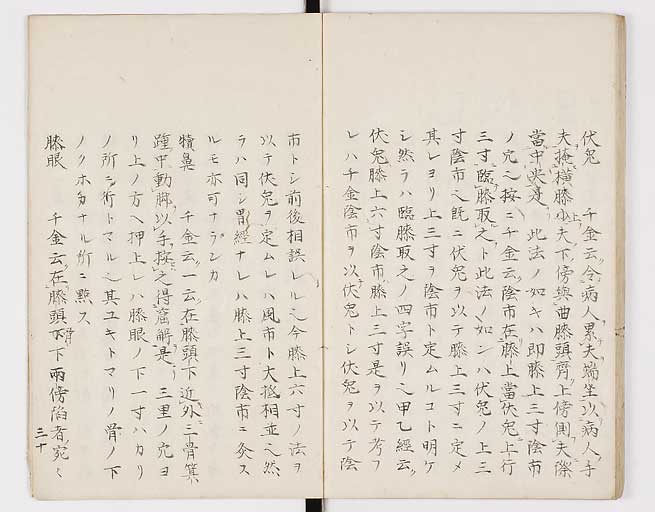 伏兎　千金云、令病人累夫端坐以病人手
夫掩横膝上小夫下傍與曲膝頭齊上傍側夫際
當中央是　此法ノ如キハ即膝上三寸陰市
ノ穴也按ニ千金云陰市在膝上當伏兎上行
三寸臨膝取之ト此法ノ如ンハ伏兎ノ上三
寸陰市也既ニ伏兎ヲ以テ膝上三寸ニ定メ
其レヨリ上三寸ヲ陰市ト定ムルコト明ケ
シ然ラハ臨膝取之ノ四字誤リ也甲乙經云
伏兎膝上六寸陰市膝上三寸是ヲ以テ考フ
レハ千金陰市ヲ以伏兎トシ伏兎ヲ以テ陰
市トシ前後相誤レル也今膝上六寸ノ法ヲ
以テ伏兎ヲ定ムレハ風市ト大抵相並へ然
ラハ同シ胃經ナレハ膝上三寸陰市ニ灸ス
ルモ亦可ナランカ
犢鼻　千金云、一云在膝頭下近外三骨箕
踵中動脚以手按之得窟解是　三里ノ穴ヨ
リ上ノ方ヘ押上レハ膝眼ノ下一寸ハカリ
ノ所ニ術トマル也其ユキトマリノ骨ノ下
ノクホカナル所ニ點ス
膝眼　千金云、在膝頭骨下兩傍陷者宛々
三十